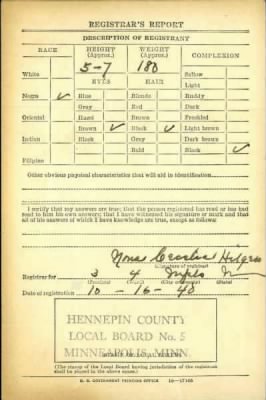 REGISTRAR'S REPORT
DESCRIPTION OF REGISTRANT
RACE HEIGHT (Approx.) WEIGHT (Approx.) COMPLEXION
5-7 180
White Sallow
EYES HAIR Light
Negro ✓ Blue Blonde Ruddy
Gray Red Dark
Oriental Hazel Brown Freckled
Brown ✓ Black ✓ Light brown
Indian Black Gray Dark brown
Bald Black ✓
Filipino
Other obvious physical characteristics that will aid in identification
I certify that my answers are true; that the person registered has read or has had
read to him his own answers; that I have witnessed his signature or mark and that
all of his answers of which I have knowledge are true, except as follows:
Nona
(Signature of registrar)
Registrar for 3 4 Mpls
(Precinct) (Ward) (City or county) (State)
Date of registration 10-16-40
HENNEPIN COUNTY
LOCAL BOARD No. 5
MINNEAPOLIS, MINN.
(STAMP OF LOCAL BOARD)
(The stamp of the Local Board having jurisdiction of the registrant
shall be placed in the above space.)
U. S. GOVERNMENT PRINTING OFFICE 16—17105